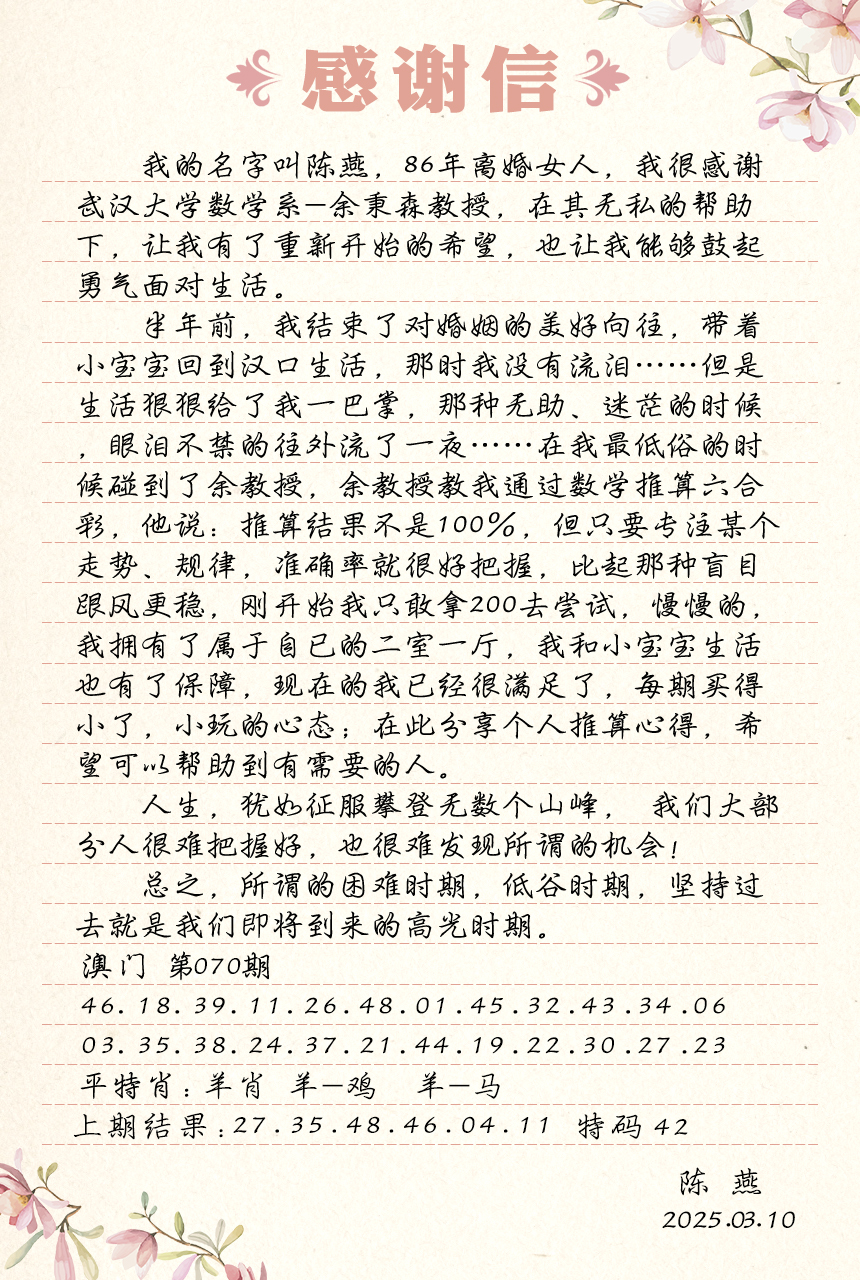 感谢信
我的名字叫陈燕，86年离婚女人，我很感谢
武汉大学数学系—余秉森教授，在其无私的帮助
下，让我有了重新开始的希望，也让我能够鼓起
勇气面对生活。
半年前，我结束了对婚姻的美好向往，带着
小宝宝回到汉口生活，那时我没有流泪……但是
生活狠狠给了我一巴掌，那种无助、迷茫的时候
，眼泪不禁的往外流了一夜……在我最低俗的时
候碰到了余教授，余教授教我通过数学推算六合
彩，他说：推算结果不是100%，但只要专注某个
走势、规律，准确率就很好把握，比起那种盲目
跟风更稳，刚开始我只敢拿200去尝试，慢慢的，
我拥有了属于自已的二室一厅，我和小宝宝生活
也有了保障，现在的我已经很满足了，每期买得
小了，小玩的心态；在此分享个人推算心得，希
望可以帮助到有需要的人。
人生，犹如征服攀登无数个山峰， 我们大部
分人很难把握好，也很难发现所谓的机会！
总之，所谓的困难时期，低谷时期，坚持过
去就是我们即将到来的高光时期。
澳门 第070期
46.18.39.11.26.48.01.45.32.43.34.06
03.35.38.24.37.21.44.19.22.30.27.23
平特肖：羊肖 羊—鸡 羊—马
上期结果：27.35.48.46.04.11 特码 42
陈 燕
2025.03.10